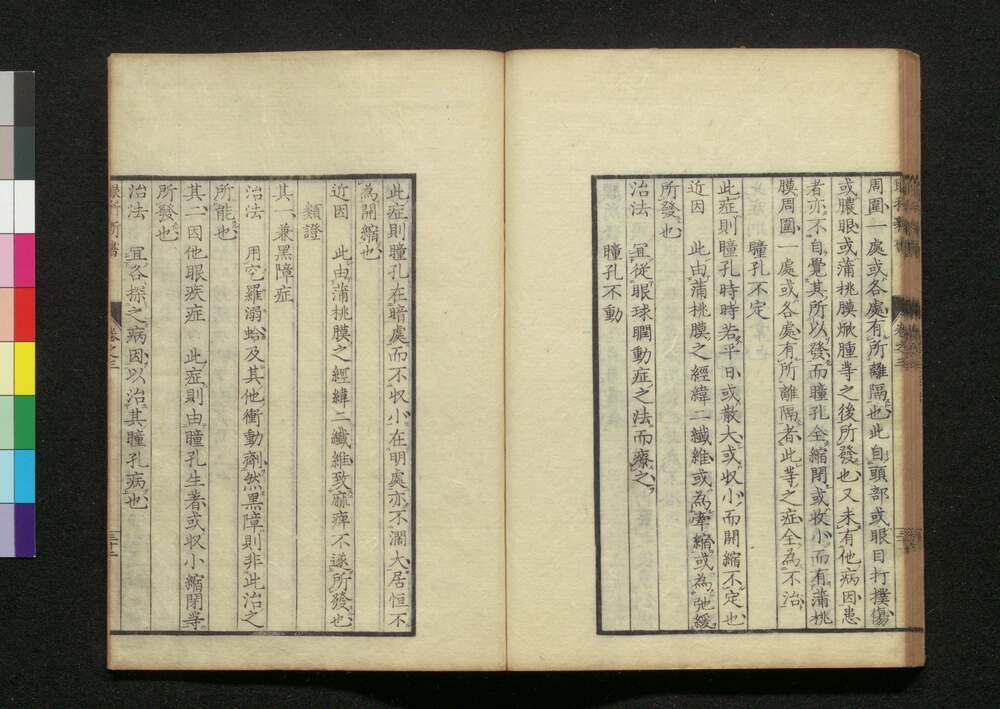 周圍一處或各處有所離隔也此自頭部或眼目打撲傷
或膿眼或蒲桃膜焮腫等之後所發也又未有他病因患
者亦不自覺其所以發而瞳孔全縮閉或收小而有蒲桃
膜周圍一處或各處有所離隔者此等之症全為不治
瞳孔不定
此症則瞳孔時時若平日或散大或收小而開縮不定也
近因 此由蒲桃膜之經緯二纖維或為牽縮或為弛緩
所發也
治法 宜從眼球瞤動症之法而療之
瞳孔不動
此症則瞳孔在暗處而不收小在明處亦不濶大居恒不
為開縮也
近因 此由蒲桃膜之經緯二纖維致麻痺不遂所發也
類證
其一兼黑障症
治法 用空羅溺蛤及其他衝動劑然黑障則非此治之
所能也
其二因他眼疾症 此症則由瞳孔生著或收小縮閉等
所發也
治法 宜各探之病因以治其瞳孔病也
卷之三